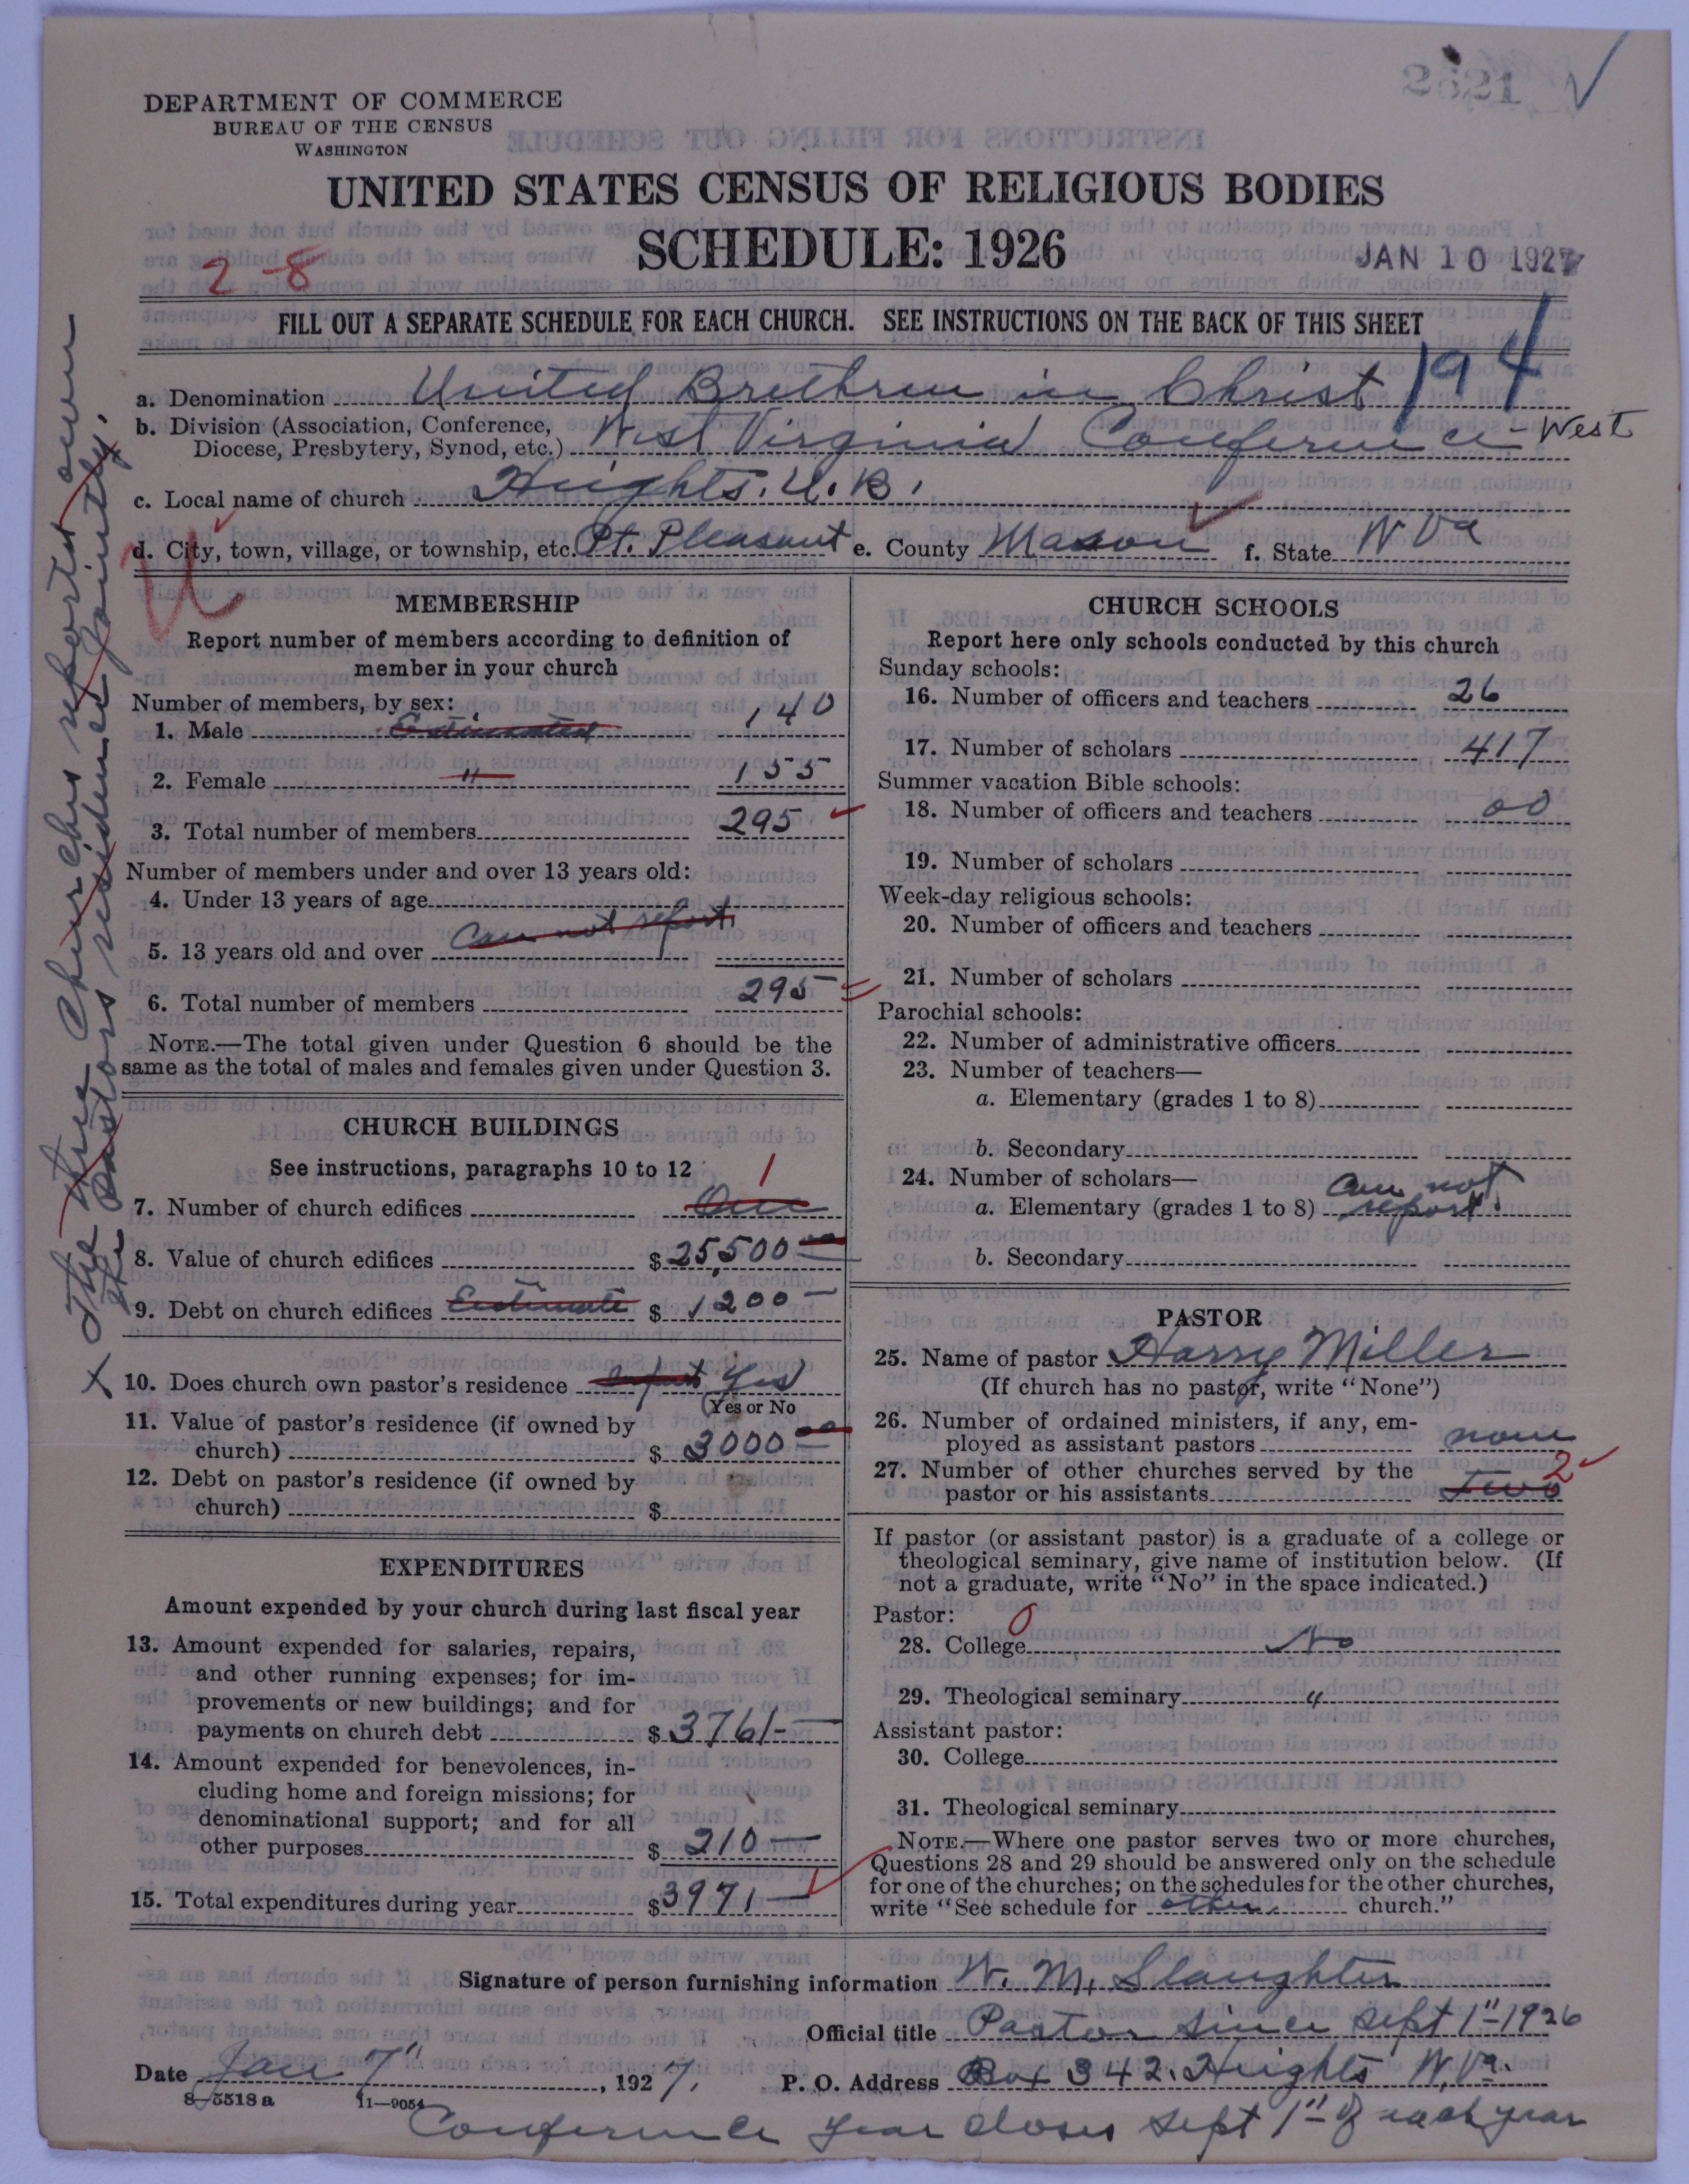 1252
DEPARTMENT OF COMMERCE
BUREAU OF THE CENSUS
WASHINGTON
UNITED STATES CENSUS OF RELIGIOUS BODIES
SCHEDULE: 1926
2-8
JAN 10 1927
FILL OUT A SEPARATE SCHEDULE FOR EACH CHURCH. SEE INSTRUCTIONS ON THE BACK OF THIS SHEET
194
a. Denomination United Brethren in Christ
b. Division (Association, Conference,
Diocese, Presbytery, Synod, etc.) West Virginia Conference - West
c. Local name of church Heights. U. B.
d. City, town, village, or township, etc. Pt. Pleasant e. County Mason f. State W Va
MEMBERSHIP
Report number of members according to definition of
member in your church
Number of members, by sex:
1. Male Estimated 140
2. Female " 155
3. Total number of members 295
Number of members under and over 13 years old:
4. Under 13 years of age
5. 13 years old and over Can not report
6. Total number of members 295
NOTE.—The total given under Question 6 should be the
same as the total of males and females given under Question 3.
CHURCH BUILDINGS
See instructions, paragraphs 10 to 12
7. Number of church edifices One 1
8. Value of church edifices $ 25,500 00
9. Debt on church edifices Estimate $ 1200
X 10. Does church own pastor's residence Yes
(Yes or No
11. Value of pastor's residence (if owned by
church) $ 3000 00
12. Debt on pastor's residence (if owned by
church) $
EXPENDITURES
Amount expended by your church during last fiscal year
13. Amount expended for salaries, repairs,
and other running expenses; for im-
provements or new buildings; and for
payments on church debt $ 3761-
14. Amount expended for benevolences, in-
cluding home and foreign missions; for
denominational support; and for all
other purposes $ 210
15. Total expenditures during year $ 3971
X The three Churches reported own
the pastors residence jointly.
CHURCH SCHOOLS
Report here only schools conducted by this church
Sunday schools:
16. Number of officers and teachers 26
17. Number of scholars 417
Summer vacation Bible schools:
18. Number of officers and teachers 00
19. Number of scholars
Week-day religious schools:
20. Number of officers and teachers
21. Number of scholars
Parochial schools:
22. Number of administrative officers
23. Number of teachers—
a. Elementary (grades 1 to 8)
b. Secondary
24. Number of scholars—
a. Elementary (grades 1 to 8) can not report.
b. Secondary
PASTOR
25. Name of pastor Harry Miller
(If church has no pastor, write "None")
26. Number of ordained ministers, if any, em-
ployed as assistant pastors none
27. Number of other churches served by the
pastor or his assistants two 2
If pastor (or assistant pastor) is a graduate of a college or
theological seminary, give name of institution below. (If
not a graduate, write "No" in the space indicated.)
Pastor: 0
28. College No
29. Theological seminary "
Assistant pastor:
30. College
31. Theological seminary
NOTE.—Where one pastor serves two or more churches,
Questions 28 and 29 should be answered only on the schedule
for one of the churches; on the schedules for the other churches,
write "See schedule for other church."
Signature of person furnishing information W. M. Slaughter
Official title Pastor since Sept 1" - 1926
Date Jan 7", 1927. P. O. Address Box 342. Heights W. Va.
8-5518 a 11—9054
Conference year closes Sept 1" of each year